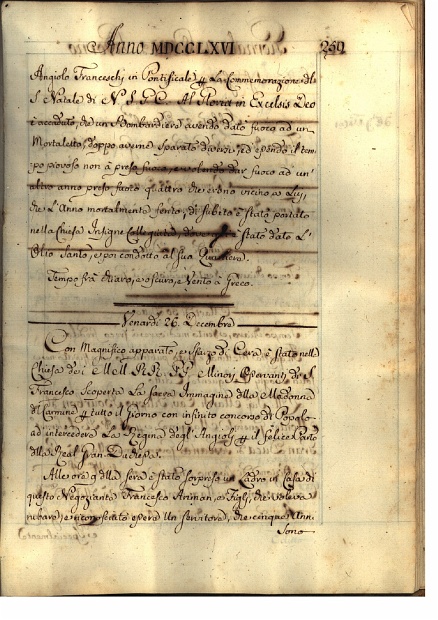 Anno MDCCLXVI 259
Angiolo Franceschi in Pontificale La Commemorazione del
S. Natale di N. S. G. C. Al Gloria in Excelsis Deo
è accaduto, che un Bombardiere avendo dato fuoco ad un
Mortaletto, doppo averne sparato diversi, ed essendo il tem-
po piovoso non à preso fuoco, e volendo dar fuoco ad un'
altro anno preso fuoco quattro che erono vicino a Lui,
che L'Anno mortalmente ferito, di subito è stato portato
nella Chiesa Insigne Collegiata, stato dato L'
Olio Santo, e poi condotto al suo Quartiere.
Tempo frà chiaro, e oscuro, e Vento à Greco.
Venerdì 26. Decembre
Con Magnifico apparato, e sfarzo di Cera è stato nella
Chiesa de i M. M. R. R. P. P. Minori Osservanti di S.
Francesco Scoperta La Sacra Immagine della Madonna
del Carmine tutto il giorno con infinito concorso di Popolo
ad intercedere La Regina degl'Angioli il felice Parto
della Real Gran Duchessa.
Alle ore 9 della sera è stato sorpreso un Ladro in Casa di
questo Negoziante Francesco Ariman, e Figli, che voleva
rubare, e riconosciuto essere Un servitore, che cinque Ann.
Sono